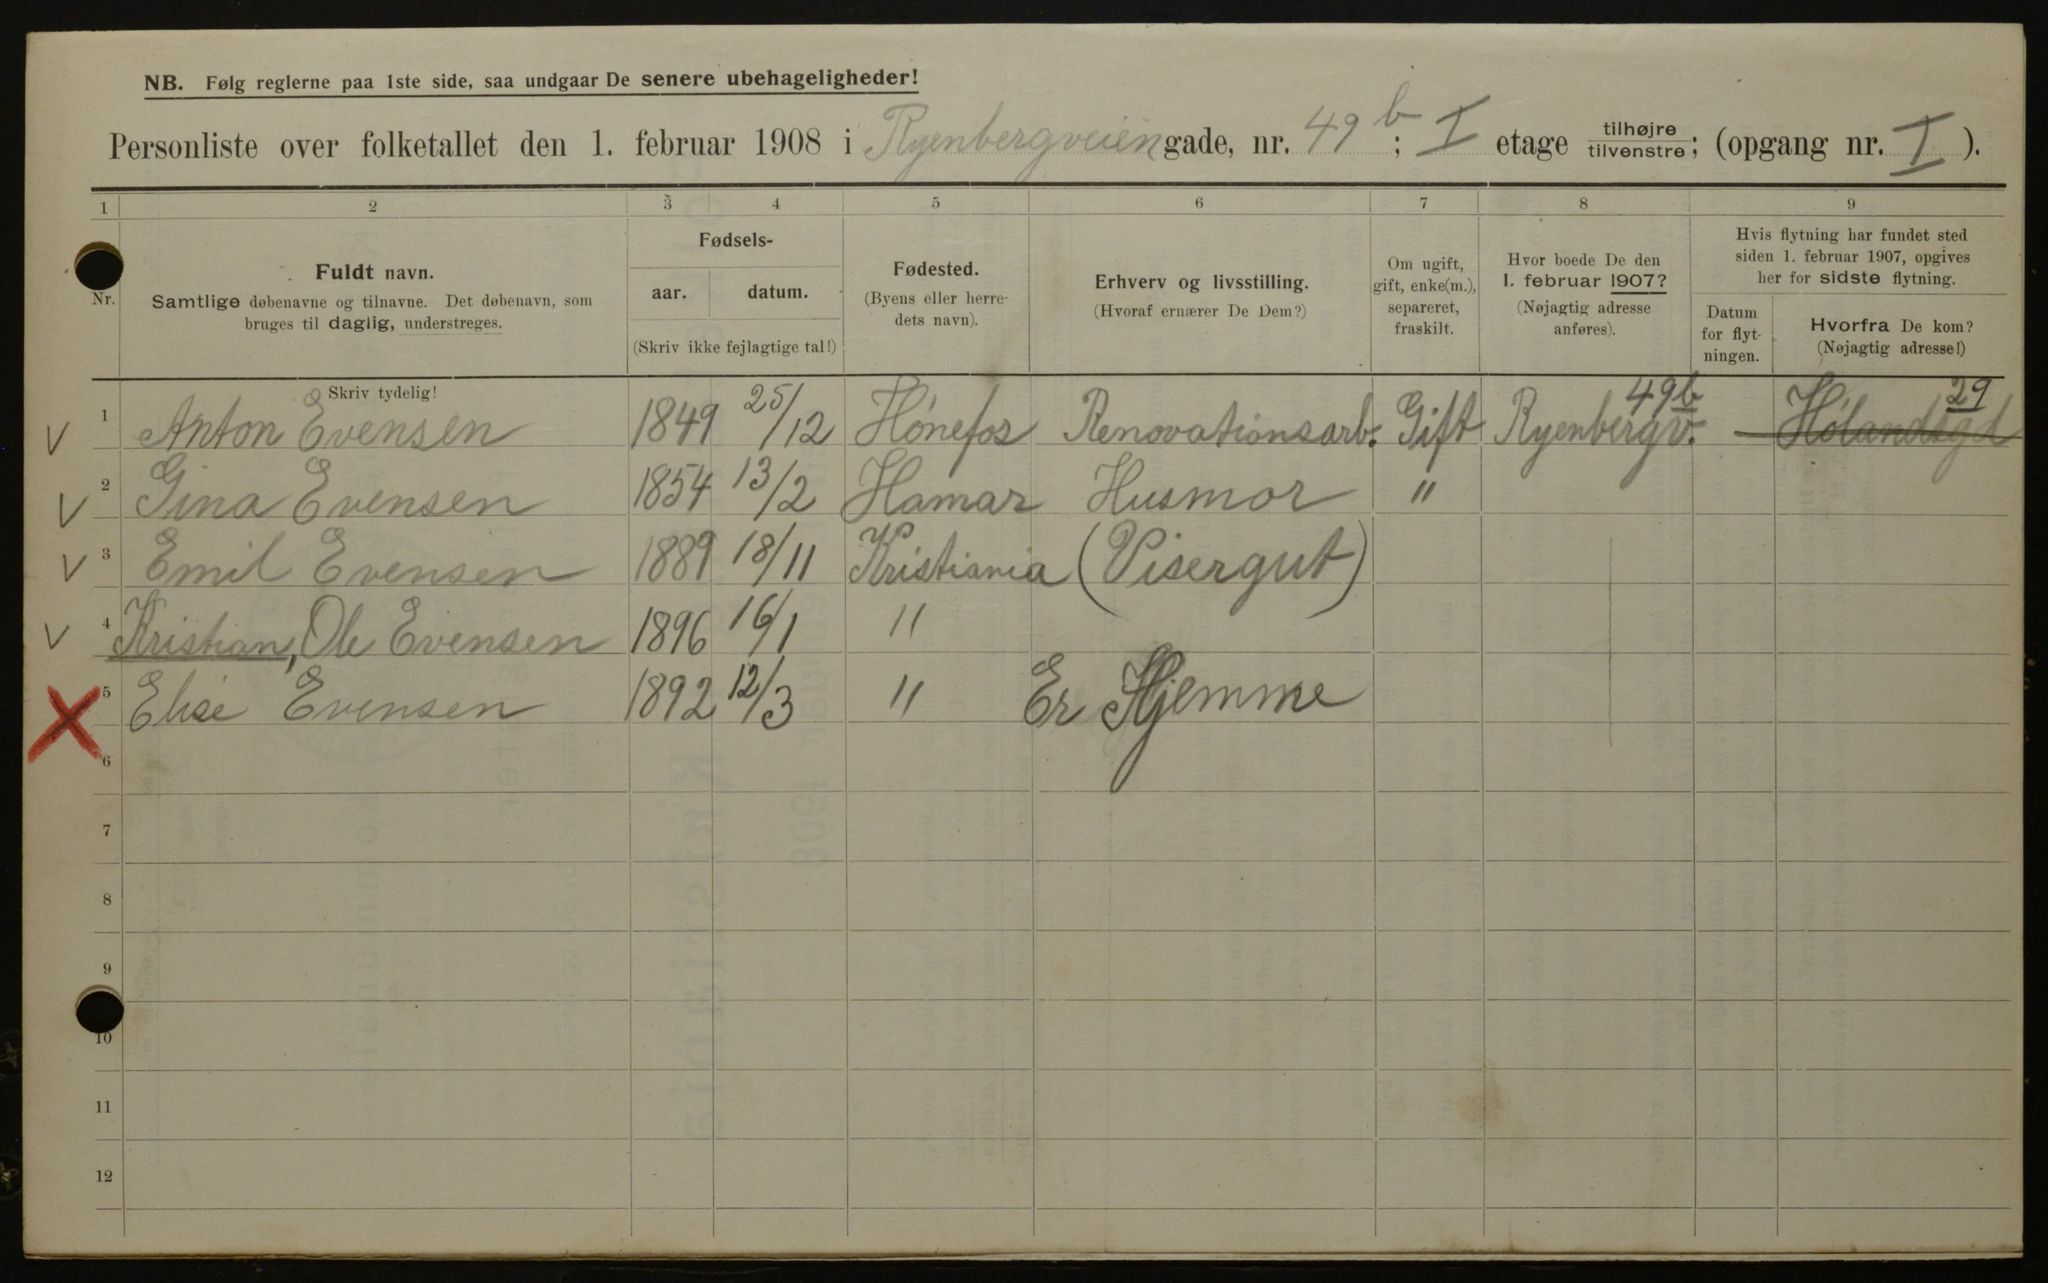 NB. Følg reglerne paa 1ste side, saa undgaar De senere ubehageligheder!
Personliste over folketallet den 1. februar 1908 i Ryenbergveien gade, nr. 49b; I etage tilhøjre tilvenstre; (opgang nr. I).
1 2 3 4 5 6 7 8 9
Nr.
Fuldt navn.
Samtlige døbenavne og tilnavne. Det døbenavn, som
bruges til daglig, understreges.
Fødsels-
aar. datum.
(Skriv ikke fejlagtige tal!)
Fødested.
(Byens eller herre-
dets navn).
Erhverv og livsstilling.
(Hvoraf ernærer De Dem?)
Om ugift,
gift, enke(m.),
separeret,
fraskilt.
Hvor boede De den
1. februar 1907?
(Nøjagtig adresse
anføres).
Hvis flytning har fundet sted
siden 1. februar 1907, opgives
her for sidste flytning.
Datum
for flyt-
ningen.
Hvorfra De kom?
(Nøjagtig adresse!)
Skriv tydelig!
V 1 Anton Evensen 1849 25/12 Hónefos Renovationsarb. Gift Ryenbergv. 49b Hólandsgd 29
V 2 Gina Evensen 1854 13/2 Hamar Husmor "
V 3 Emil Evensen 1889 18/11 Kristiania (Visergut)
V 4 Kristian, Ole Evensen 1896 16/1 "
X 5 Elise Evensen 1892 12/3 " Er Hjemme
6
7
8
9
10
11
12